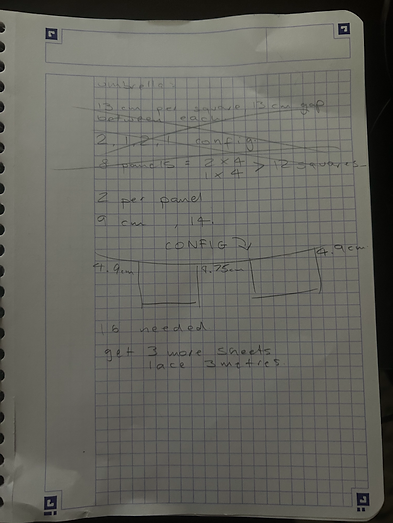 umbrella
13 cm per square, 3 cm gap
between each
2, 1, 2, 1 config
8 panels = 2 x 4 > 12 squares
1 x 4
2 per panel
9 cm , 14.
CONFIG
4.9cm 9.75cm 4.9cm
16 needed
get 3 more sheets
lace 3 metres